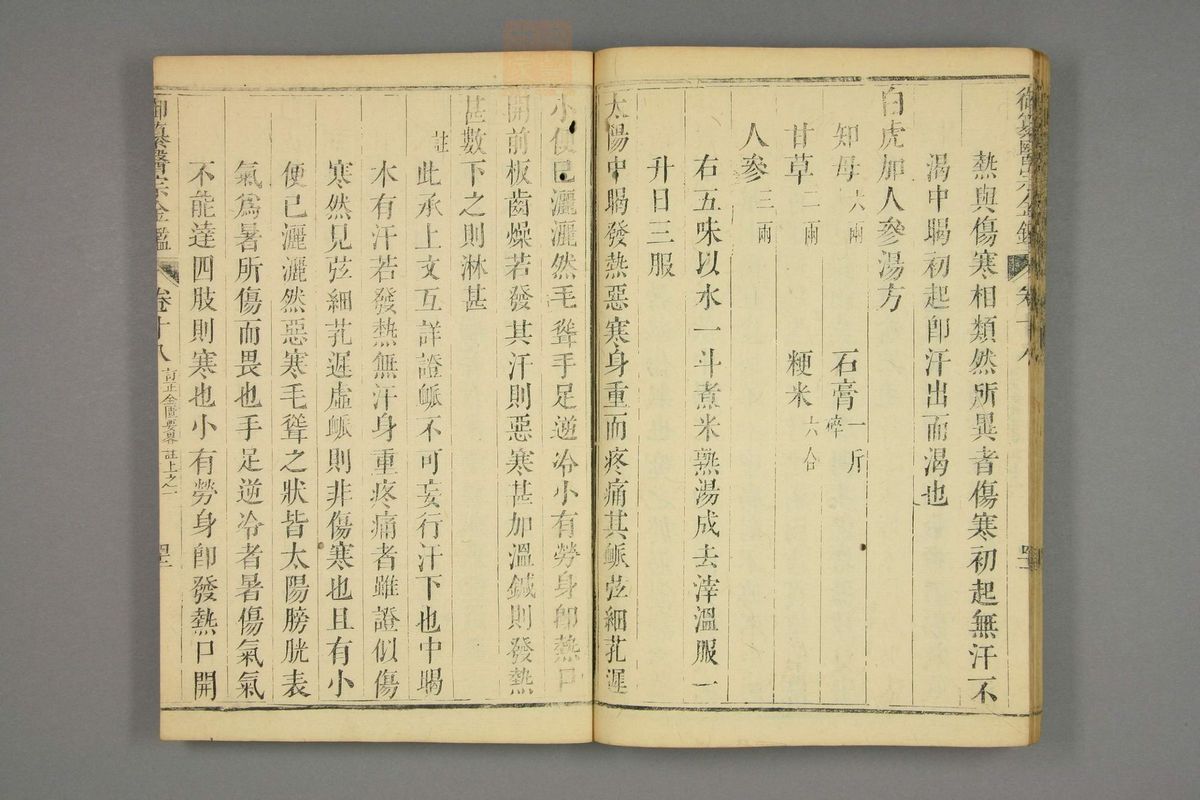 熱與傷寒相類然所異者傷寒初起無汗不
渴中暍初起卽汗出而渴也
白虎加人參湯方
知母六兩 石膏一斤碎
甘草二兩 粳米六合
人參三兩
右五味以水一斗煮米熟湯成去滓溫服一
升日三服
太陽中暍發熱惡寒身重而疼痛其脈弦細芤遲
小便已灑灑然毛聳手足逆冷小有勞身卽熱口
開前板齒燥若發其汗則惡寒甚加溫鍼則發熱
甚數下之則淋甚
註此承上文互詳證脈不可妄行汗下也中暍
本有汗若發熱無汗身重疼痛者雖證似傷
寒然見弦細芤遲虛脈則非傷寒也且有小
便已灑灑然惡寒毛聳之狀皆太陽膀胱表
氣爲暑所傷而畏也手足逆冷者暑傷氣氣
不能達四肢則寒也小有勞身卽發熱口開
御纂醫宗金鑑 卷十八 訂正金匱要畧註上之一